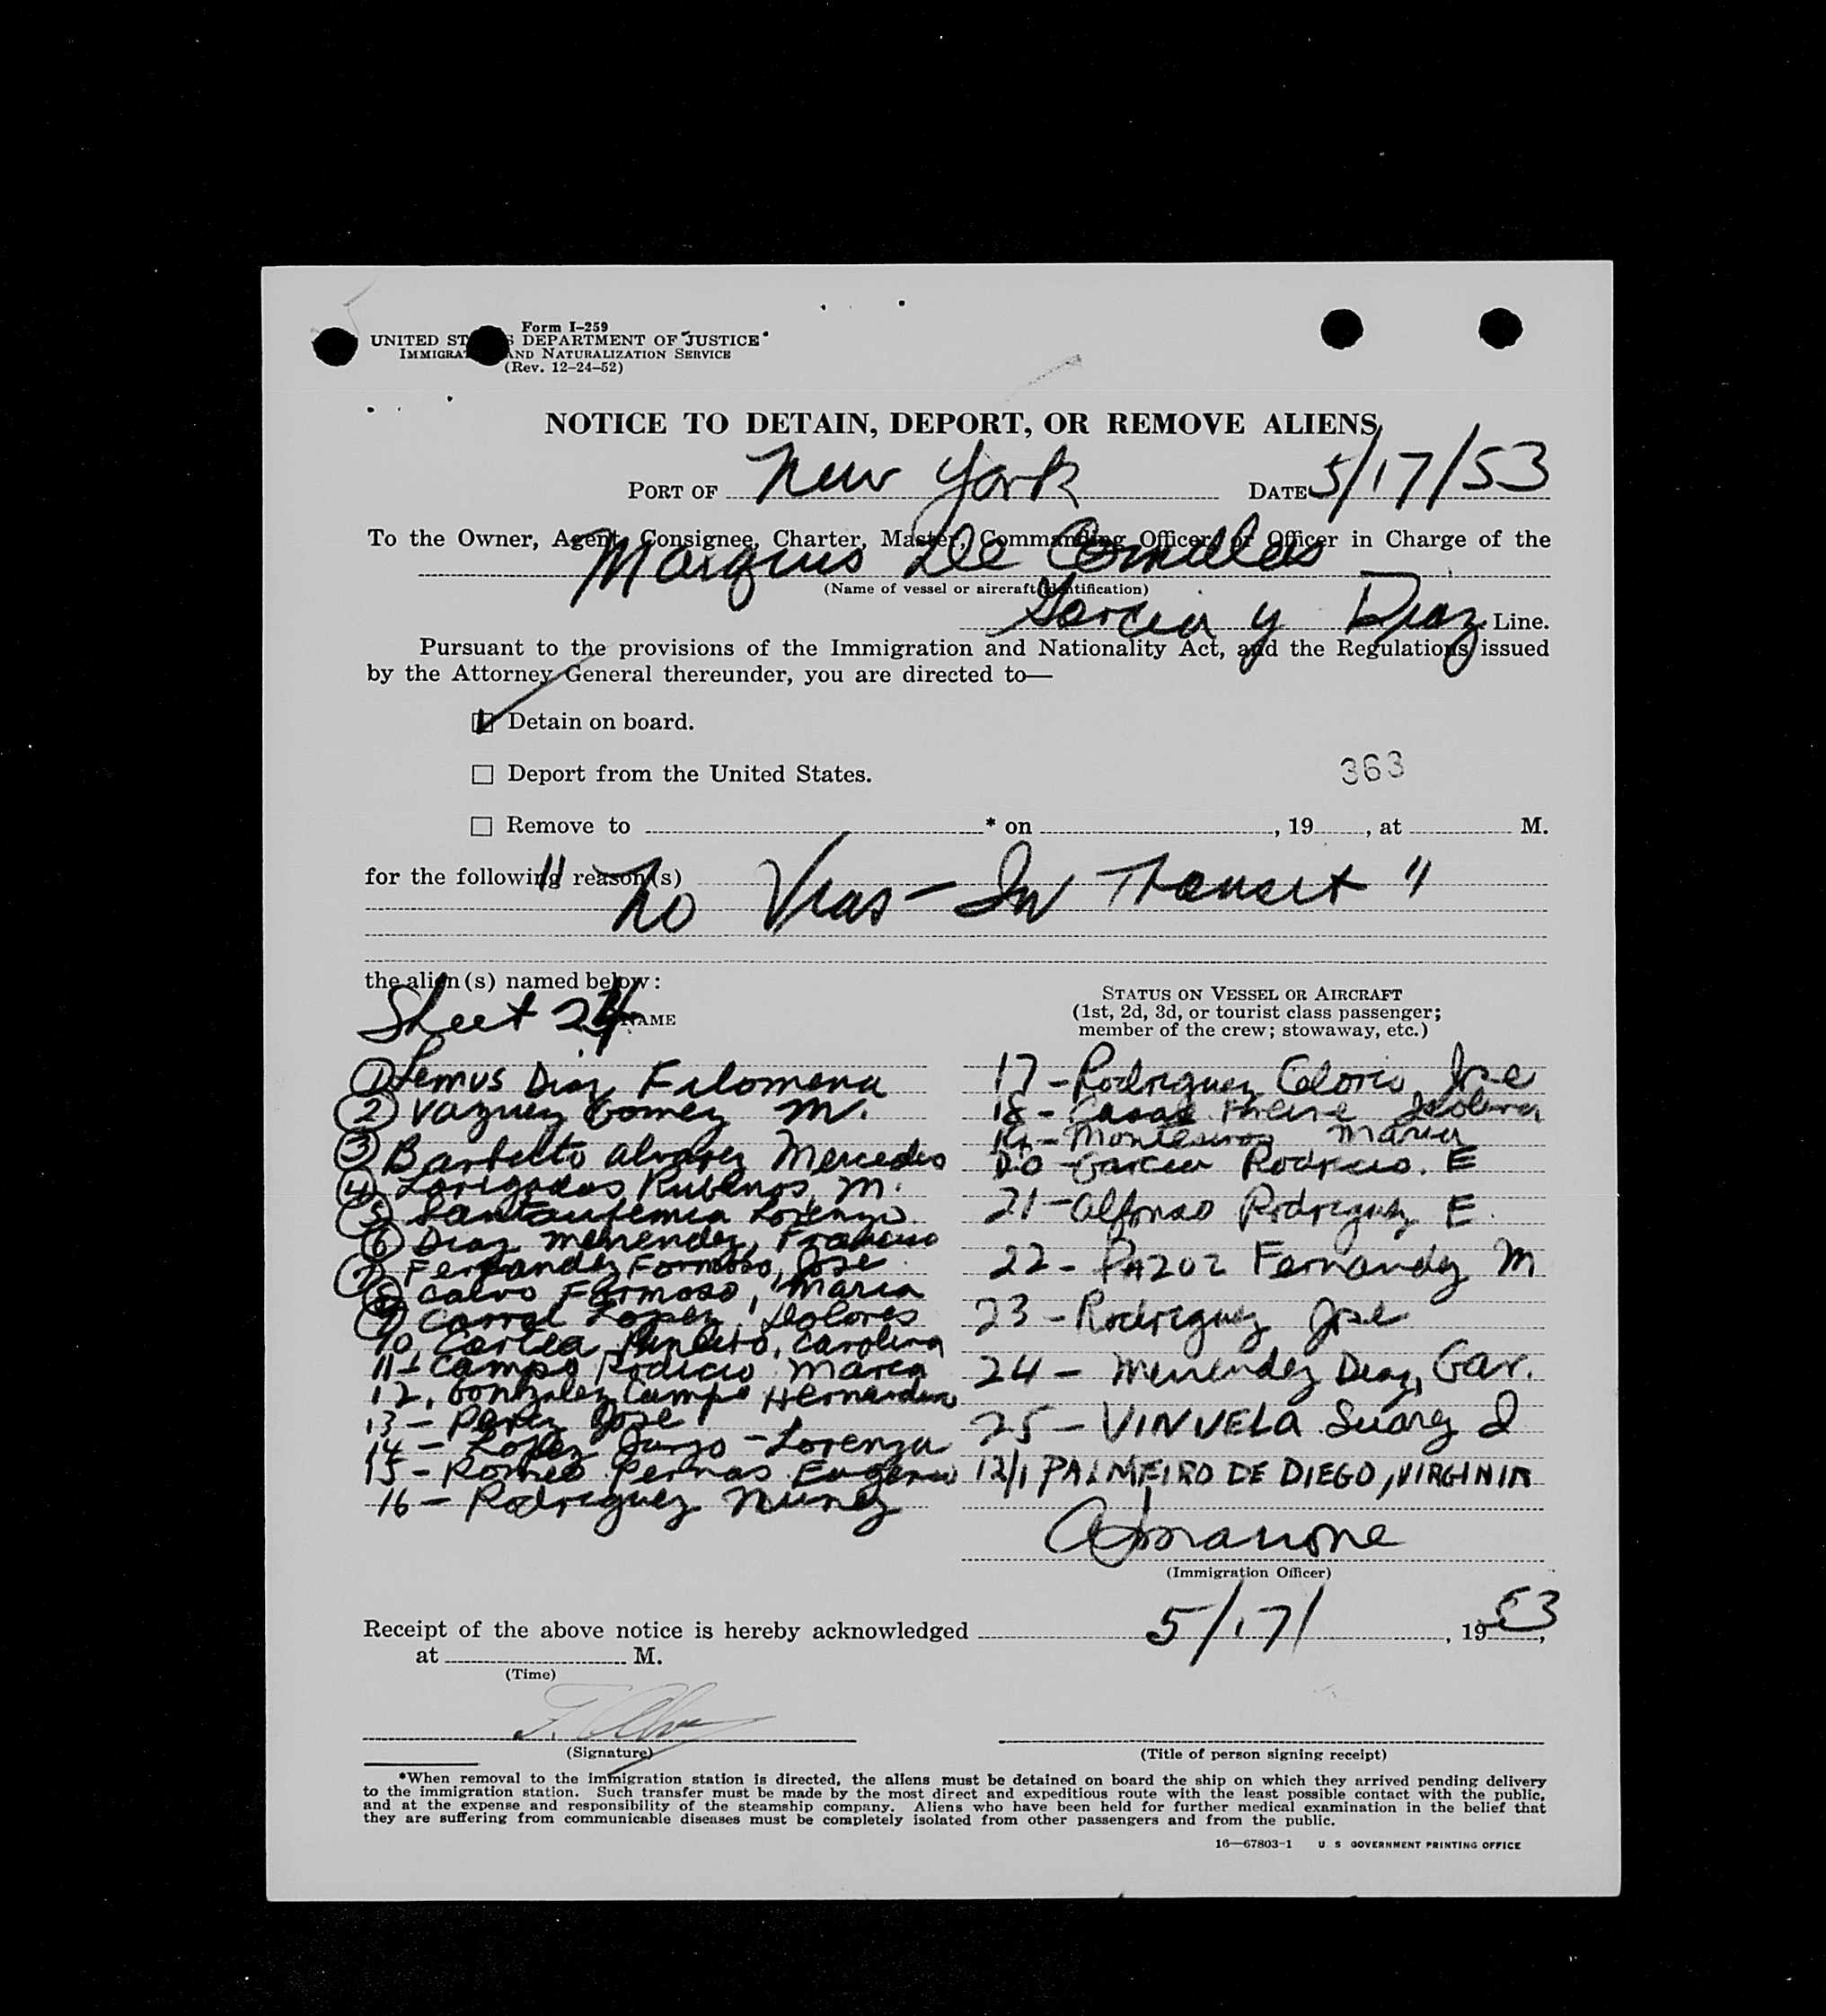 Form I-259
UNITED ST S DEPARTMENT OF JUSTICE
IMMIGRA AND NATURALIZATION SERVICE
(Rev. 12-24-52)
NOTICE TO DETAIN, DEPORT, OR REMOVE ALIENS
PORT OF New York DATE 5/17/53
To the Owner, Agent, Consignee, Charter, Master, Commanding Officer, or Officer in Charge of the
Marquis De Comillas
(Name of vessel or aircraft identification)
Garcia y Diaz Line.
Pursuant to the provisions of the Immigration and Nationality Act, and the Regulations issued
by the Attorney General thereunder, you are directed to—
Detain on board.
Deport from the United States.
363
Remove to * on , 19 , at M.
for the following reason(s)
" No Visas - In Transit "
the alien(s) named below:
Sheet 24
NAME
STATUS ON VESSEL OR AIRCRAFT
(1st, 2d, 3d, or tourist class passenger;
member of the crew; stowaway, etc.)
1 Lemus Diaz Filomena
2 Vazquez Gomez M.
3 Alvarez Mercedes
4 M.
5 Lorenzo
6 Diaz Menendez, Francisco
7 Fernandez Formoso, Jose
8 Calvo Formoso, Maria
9 Corral Lopez, Dolores
10, Carolina
11- Campo Rodicio Maria
12, Gonzalez Campo
13- Perez Jose
14 - Lopez - Lorenza
15 - Romeo Pernas Eugenio
16 - Rodriguez Nunez
17 - Rodriguez Celorio, Jose
18 - Casal Freire Isolina
19 - Maria
20 - Garcia Rodicio. E
21 - Alfonso Rodriguez E.
22 - Pazoz Fernandez M
23 - Rodriguez Jose
24 - Menendez Diaz, Gar.
25 - VINVELA Suarez
12/1 PALMEIRO DE DIEGO, VIRGINIA
(Immigration Officer)
Receipt of the above notice is hereby acknowledged 5/17/ , 1953,
at M.
(Time)
(Signature)
(Title of person signing receipt)
*When removal to the immigration station is directed, the aliens must be detained on board the ship on which they arrived pending delivery
to the immigration station. Such transfer must be made by the most direct and expeditious route with the least possible contact with the public,
and at the expense and responsibility of the steamship company. Aliens who have been held for further medical examination in the belief that
they are suffering from communicable diseases must be completely isolated from other passengers and from the public.
16—67803-1 U S GOVERNMENT PRINTING OFFICE